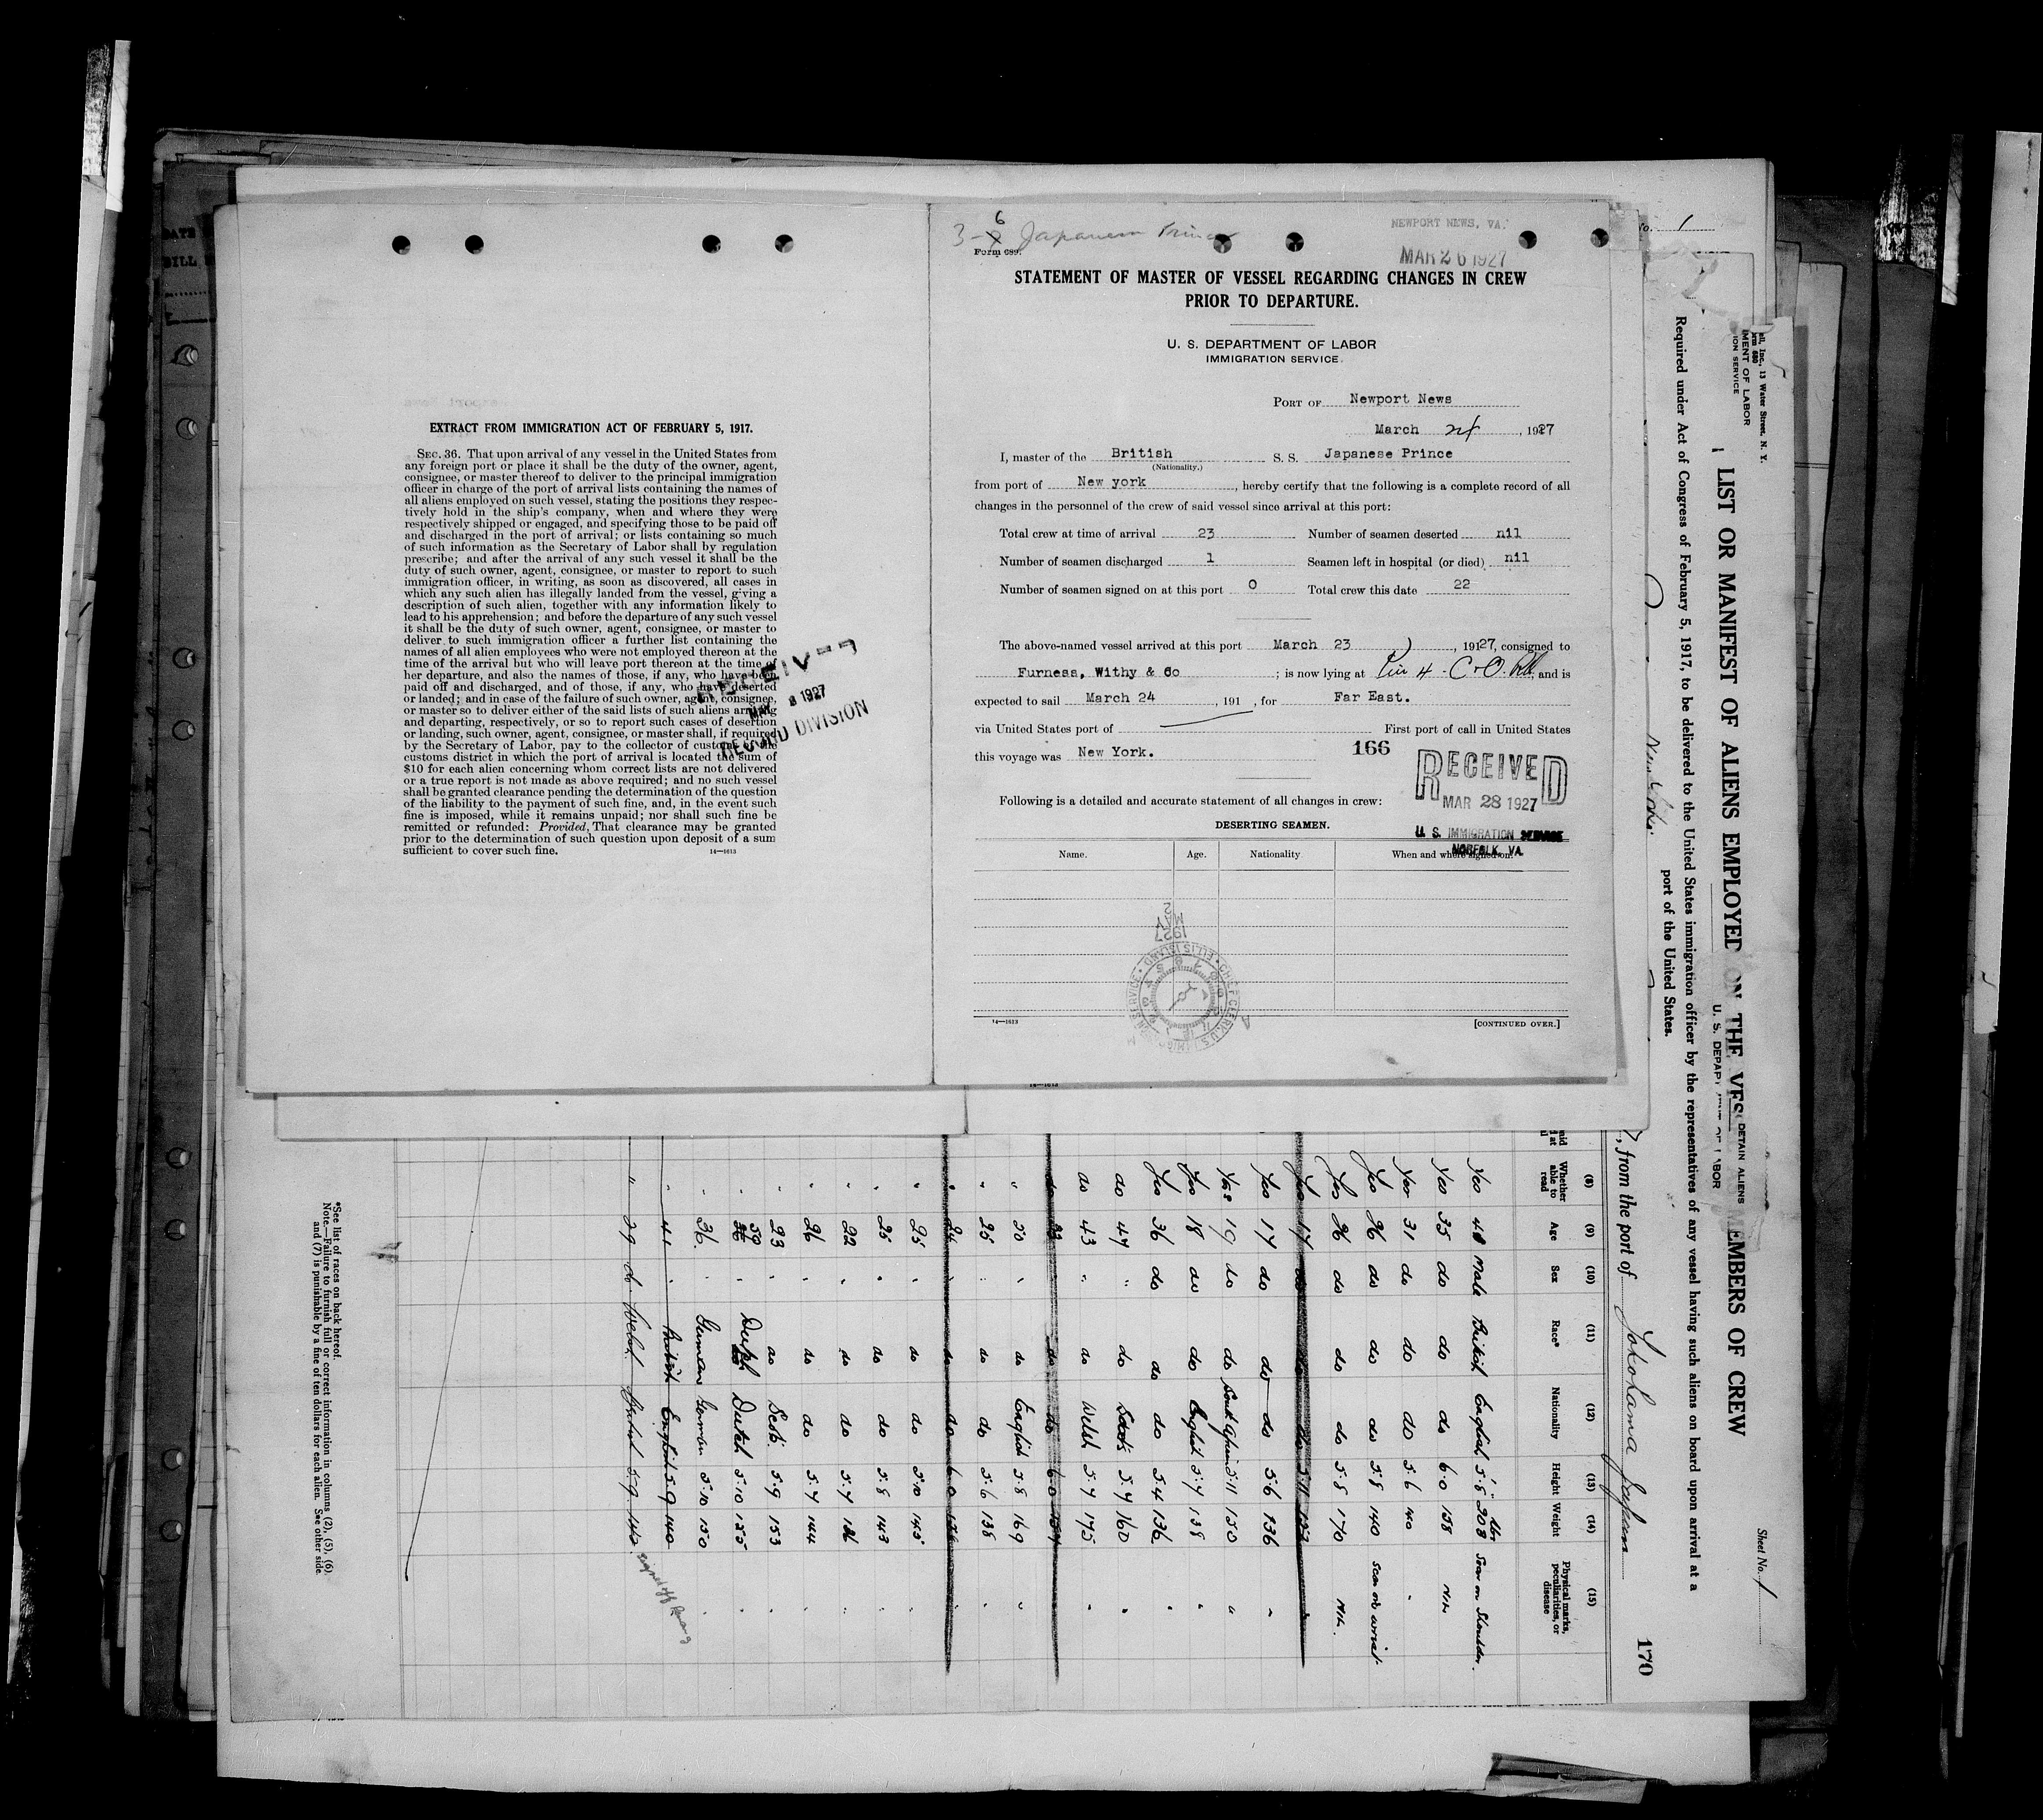 EXTRACT FROM IMMIGRATION ACT OF FEBRUARY 5, 1917.
SEC. 36. That upon arrival of any vessel in the United States from
any foreign port or place it shall be the duty of the owner, agent,
consignee, or master thereof to deliver to the principal immigration
officer in charge of the port of arrival lists containing the names of
all aliens employed on such vessel, stating the positions they respec-
tively hold in the ship's company, when and where they were
respectively shipped or engaged, and specifying those to be paid off
and discharged in the port of arrival; or lists containing so much
of such information as the Secretary of Labor shall by regulation
prescribe; and after the arrival of any such vessel it shall be the
duty of such owner, agent, consignee, or master to report to such
immigration officer, in writing, as soon as discovered, all cases in
which any such alien has illegally landed from the vessel, giving a
description of such alien, together with any information likely to
lead to his apprehension; and before the departure of any such vessel
it shall be the duty of such owner, agent, consignee, or master to
deliver to such immigration officer a further list containing the
names of all alien employees who were not employed thereon at the
time of the arrival but who will leave port thereon at the time of
her departure, and also the names of those, if any, who have been
paid off and discharged, and of those, if any, who have deserted
or landed; and in case of the failure of such owner, agent, consignee,
or master so to deliver either of the said lists of such aliens arriving
and departing, respectively, or so to report such cases of desertion
or landing, such owner, agent, consignee, or master shall, if required
by the Secretary of Labor, pay to the collector of customs of the
customs district in which the port of arrival is located the sum of
$10 for each alien concerning whom correct lists are not delivered
or a true report is not made as above required; and no such vessel
shall be granted clearance pending the determination of the question
of the liability to the payment of such fine, and, in the event such
fine is imposed, while it remains unpaid; nor shall such fine be
remitted or refunded: Provided, That clearance may be granted
prior to the determination of such question upon deposit of a sum
sufficient to cover such fine.
14—1613
RECEIVED
1927
RECORD DIVISION
3-6 Japanese Prince
NEWPORT NEWS, VA.
MAR 26 1927
Form 689.
STATEMENT OF MASTER OF VESSEL REGARDING CHANGES IN CREW
PRIOR TO DEPARTURE.
U. S. DEPARTMENT OF LABOR
IMMIGRATION SERVICE
PORT OF Newport News
March 24, 1927
I, master of the British S. S. Japanese Prince
(Nationality.)
from port of New york, hereby certify that the following is a complete record of all
changes in the personnel of the crew of said vessel since arrival at this port:
Total crew at time of arrival 23 Number of seamen deserted nil
Number of seamen discharged 1 Seamen left in hospital (or died) nil
Number of seamen signed on at this port 0 Total crew this date 22
The above-named vessel arrived at this port March 23, 1927, consigned to
Furness, Withy & Co; is now lying at Pier 4 - C+O. and is
expected to sail March 24, 191 , for Far East.
via United States port of First port of call in United States
this voyage was New York.
166
RECEIVED
MAR 28 1927
U. S. IMMIGRATION SERVICE
NORFOLK, VA.
Following is a detailed and accurate statement of all changes in crew:
DESERTING SEAMEN.
Name. Age. Nationality When and where signed on.
1927
MAY
2
CHIEF CLERK, U.S. IMMIGRATION SERVICE ELLIS ISLAND
14—1613
[CONTINUED OVER.]
No. 1
Sheet No. 1
170
13 Water Street, N. Y.
LIST OR MANIFEST OF ALIENS EMPLOYED ON THE VESSEL MEMBERS OF CREW
DETAIN ALIENS
Required under Act of Congress of February 5, 1917, to be delivered to the United States immigration officer by the representatives of any vessel having such aliens on board upon arrival at a
port of the United States.
, from the port of Yokohama Japan
(8) Whether able to read (9) Age (10) Sex (11) Race* (12) Nationality (13) Height (14) Weight (15) Physical marks, peculiarities, or disease
Yes 48 Male British English 5.8 208 Scar on Shoulder.
Yes 35 do do do 6.0 158 Nil
Yes 31 do do do 5.6 140 "
Yes 26 do do do 5.8 140 Scar on wrist
Yes 26 do do do 5.8 170 Nil.
Yes 17 do do do 5.11
Yes 17 do do do 5.6 136 "
Yes 19 do do South African 5.11 150 "
Yes 18 do do English 5.7 138 "
Yes 36 do do do 5.4 136 "
do 47 " do Scots 5.7 160 "
do 43 " do Welsh 5.7 175 "
do do do 6.0
" 50 " do English 5.8 169 "
" 25 " do do 5.6 138 "
" 24 " do do 6.0
" 25 " do do 5.10 145 "
" 25 " do do 5.8 143 "
" 22 " do do 5.7 "
" 26 " do do 5.7 144 "
" 23 " do Scots. 5.9 153 "
" 50 " Dutch Dutch 5.10 155 "
" 36. " German German 5.10 150 "
" 41 " British English 5.9 140
" 29 do Welsh British 5.9. 140.
signed off Penang
*See list of races on back hereof.
Note.—Failure to furnish full or correct information in columns (2), (5), (6)
and (7) is punishable by a fine of ten dollars for each alien. See other side.